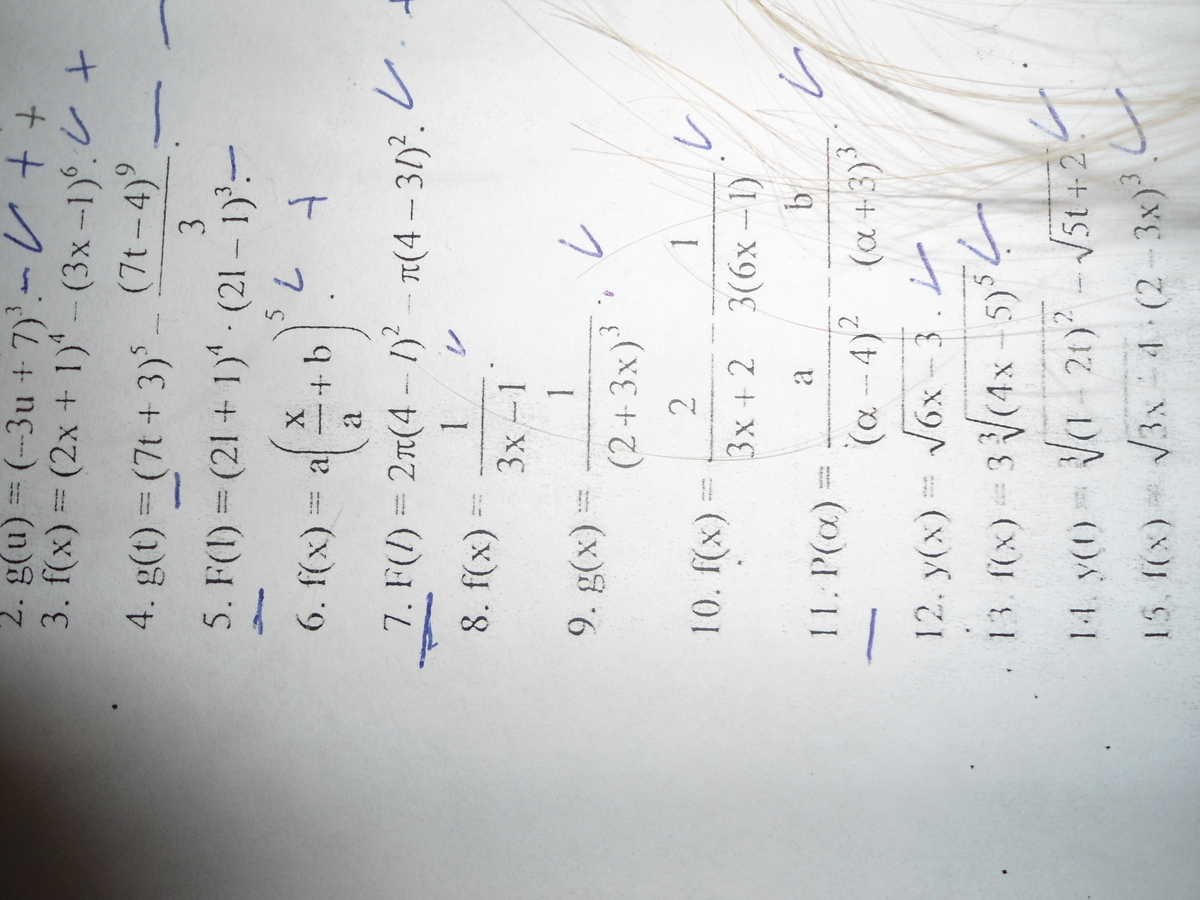 2. g(u) = (−3u + 7)³.
3. f(x) = (2x + 1)⁴ − (3x − 1)⁶.
4. g(t) = (7t + 3)⁵ − (7t − 4)⁹/3.
5. F(l) = (2l + 1)⁴ · (2l − 1)³.
6. f(x) = a(x/a + b)⁵.
7. F(l) = 2π(4 − l)² − π(4 − 3l)².
8. f(x) = 1/(3x − 1).
9. g(x) = 1/(2 + 3x)³.
10. f(x) = 2/(3x + 2) − 1/(3(6x − 1)).
11. P(α) = a/(α − 4)² − b/(α + 3)³.
12. y(x) = √(6x − 3).
13. f(x) = 3∛((4x − 5)⁵).
14. y(t) = ∛((1 − 2t)²) − √(5t + 2).
15. f(x) = √(3x − 4) · (2 − 3x)³.